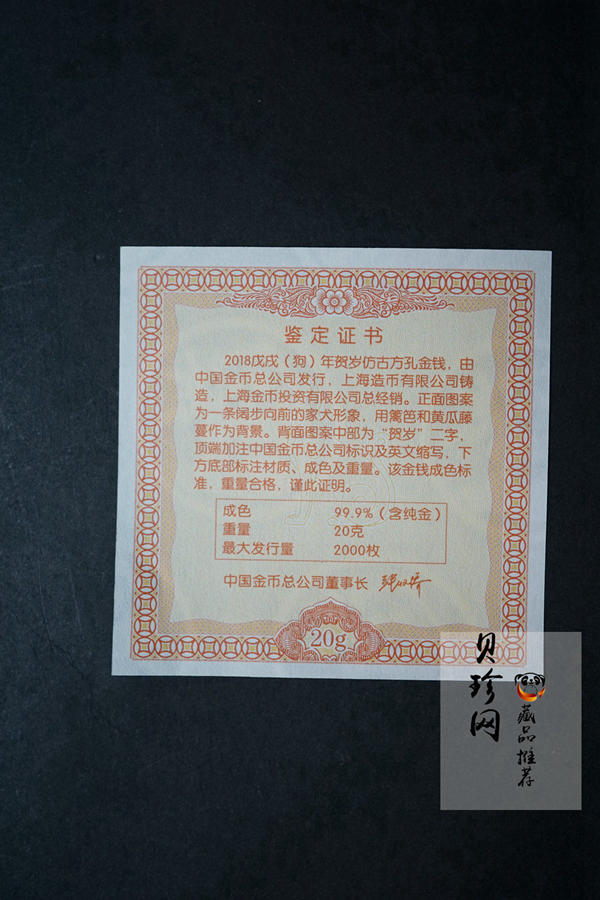 鉴定证书
2018戊戌（狗）年贺岁仿古方孔金钱，由
中国金币总公司发行，上海造币有限公司铸
造，上海金币投资有限公司总经销。正面图案
为一条阔步向前的家犬形象，用篱笆和黄瓜藤
蔓作为背景。背面图案中部为“贺岁”二字，
顶端加注中国金币总公司标识及英文缩写，下
方底部标注材质、成色及重量。该金钱成色标
准，重量合格，谨此证明。
成色 99.9%（含纯金）
重量 20克
最大发行量 2000枚
中国金币总公司董事长
20g
贝珍网
藏品推荐